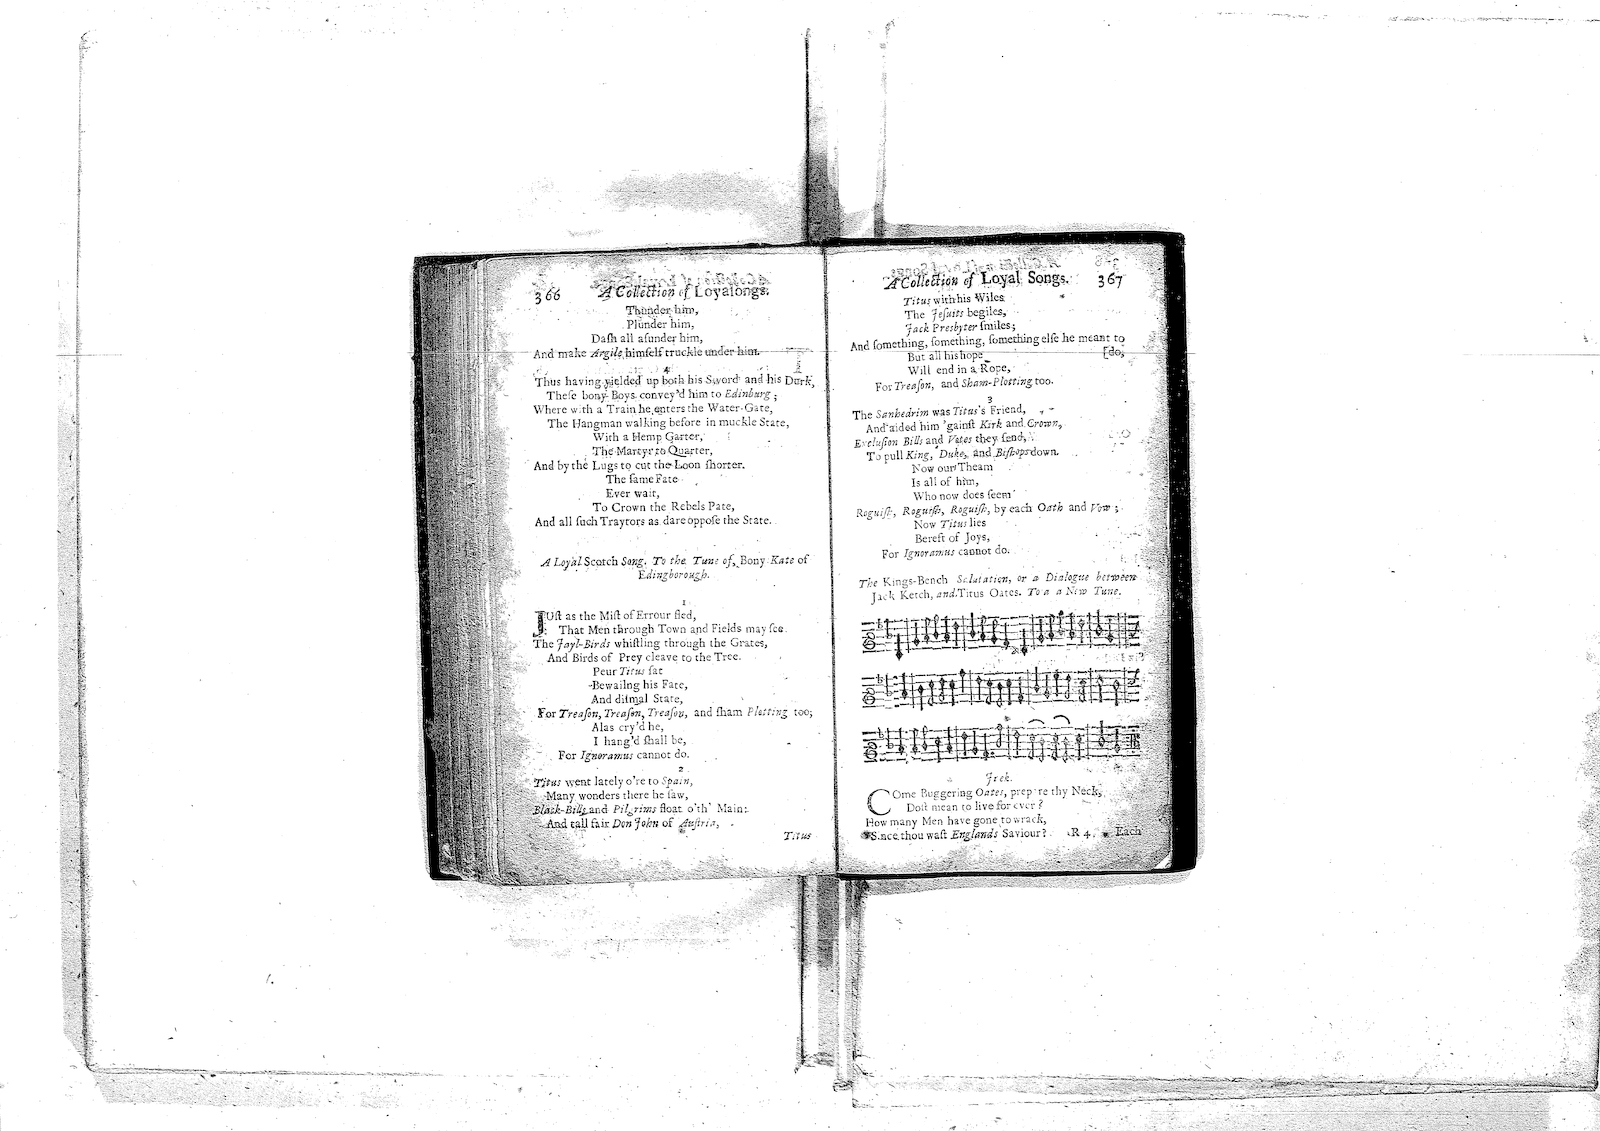 366 A Collection of Loyalongs.
Thunder him,
Plunder him,
Daſh all aſunder him,
And make Argile himſelf truckle under him.
4
Thus having yielded up both his Sword and his Durk,
Theſe bony Boys convey'd him to Edinburg;
Where with a Train he enters the Water-Gate,
The Hangman walking before in muckle State,
With a Hemp Garter,
The Martyr to Quarter,
And by the Lugs to cut the Loon ſhorter.
The ſame Fate
Ever wait,
To Crown the Rebels Pate,
And all ſuch Traytors as dare oppoſe the State.
A Loyal Scotch Song. To the Tune of, Bony Kate of
Edingborough.
1
JUſt as the Miſt of Errour fled,
That Men through Town and Fields may ſee
The Jayl-Birds whiſtling through the Grates,
And Birds of Prey cleave to the Tree.
Peur Titus ſat
Bewailng his Fate,
And diſmal State,
For Treaſon, Treaſon, Treaſon, and ſham Plotting too;
Alas cry'd he,
I hang'd ſhall be,
For Ignoramus cannot do.
2
Titus went lately o're to Spain,
Many wonders there he ſaw,
Black-Bills and Pilgrims float o'th' Main:
And tall fair Don John of Auſtria,
Titus
A Collection of Loyal Songs. 367
Titus with his Wiles
The Jeſuits begiles,
Jack Presbyter ſmiles;
And ſomething, ſomething, ſomething elſe he meant to
But all his hope [do;
Will end in a Rope,
For Treaſon, and Sham-Plotting too.
3
The Sanhedrim was Titus's Friend,
And aided him 'gainſt Kirk and Crown,
Excluſion Bills and Votes they ſend,
To pull King, Duke, and Biſhops down.
Now our Theam
Is all of him,
Who now does ſeem
Roguiſh, Roguiſh, Roguiſh, by each Oath and Vow;
Now Titus lies
Bereft of Joys,
For Ignoramus cannot do.
The Kings-Bench Salutation, or a Dialogue between
Jack Ketch, and Titus Oates. To a a New Tune.
COme Buggering Oates, prepare thy Neck,
Doſt mean to live for ever?
How many Men have gone to wrack,
Since thou waſt Englands Saviour?
R 4. Each